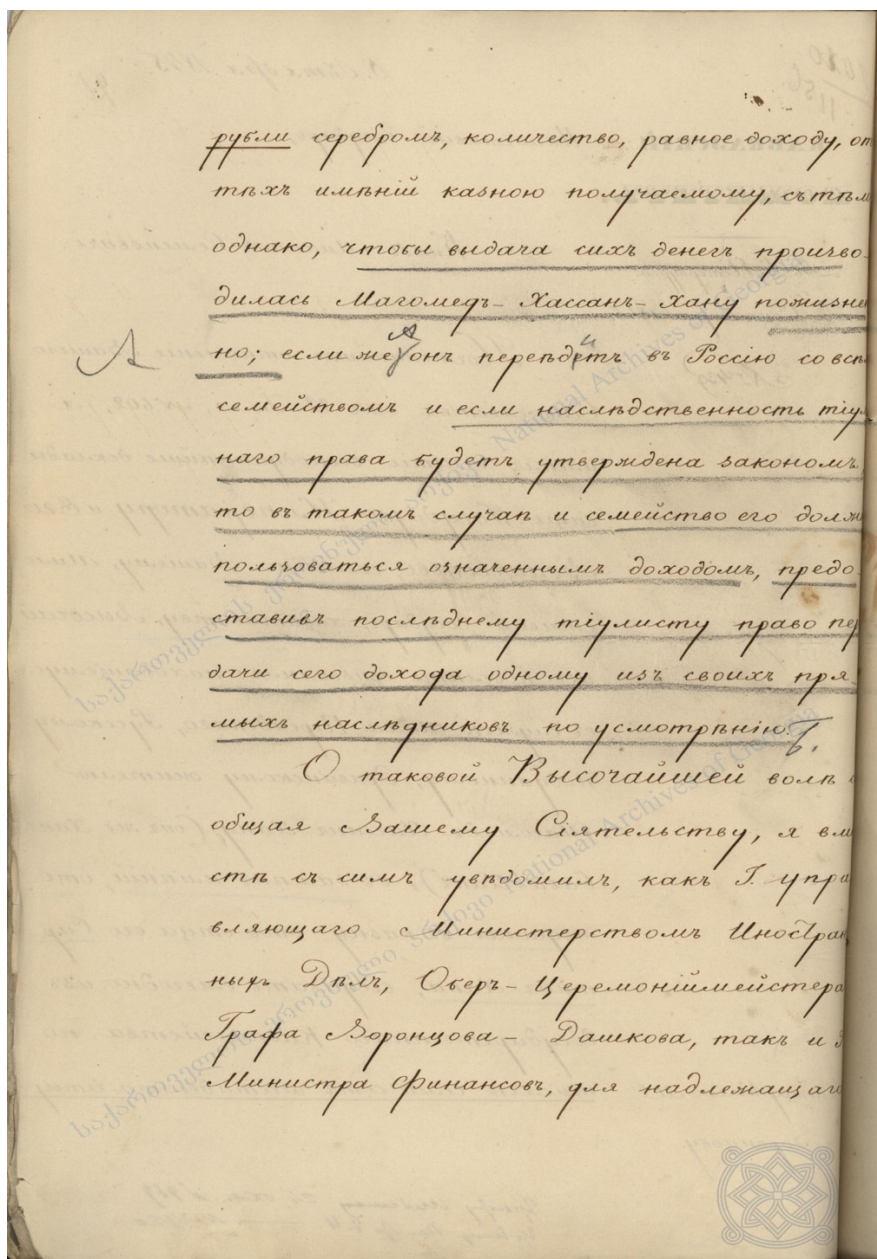 рубли серебромъ, количество, равное доходу, от
тѣхъ имѣній казною получаемому, съ тѣм
однако, чтобы выдача сихъ денегъ произво-
дилась Магомедъ-Хассанъ-Хану пожизне
А но; если же А онъ перейдетъ въ Россію со всѣ
семействомъ и если наслѣдственность тіул
наго права будетъ утверждена закономъ,
то въ такомъ случаѣ и семейство его долж
пользоваться означеннымъ доходомъ, предо-
ставивъ послѣднему тіулисту право пер
дачи сего дохода одному изъ своихъ пря-
мыхъ наслѣдниковъ по усмотрѣнію. Б.
О таковой Высочайшей волѣ
общая Вашему Сіятельству, я вмѣ
стѣ съ симъ увѣдомилъ, какъ Г. упра
вляющаго Министерствомъ Иностран
ныхъ Дѣлъ, Оберъ-Церемоніймейстера
Графа Воронцова-Дашкова, такъ и
Министра Финансовъ, для надлежащаго
საქართველოს ეროვნული არქივი National Archives of Georgia
საქართველოს ეროვნული არქივი National Archives of Georgia